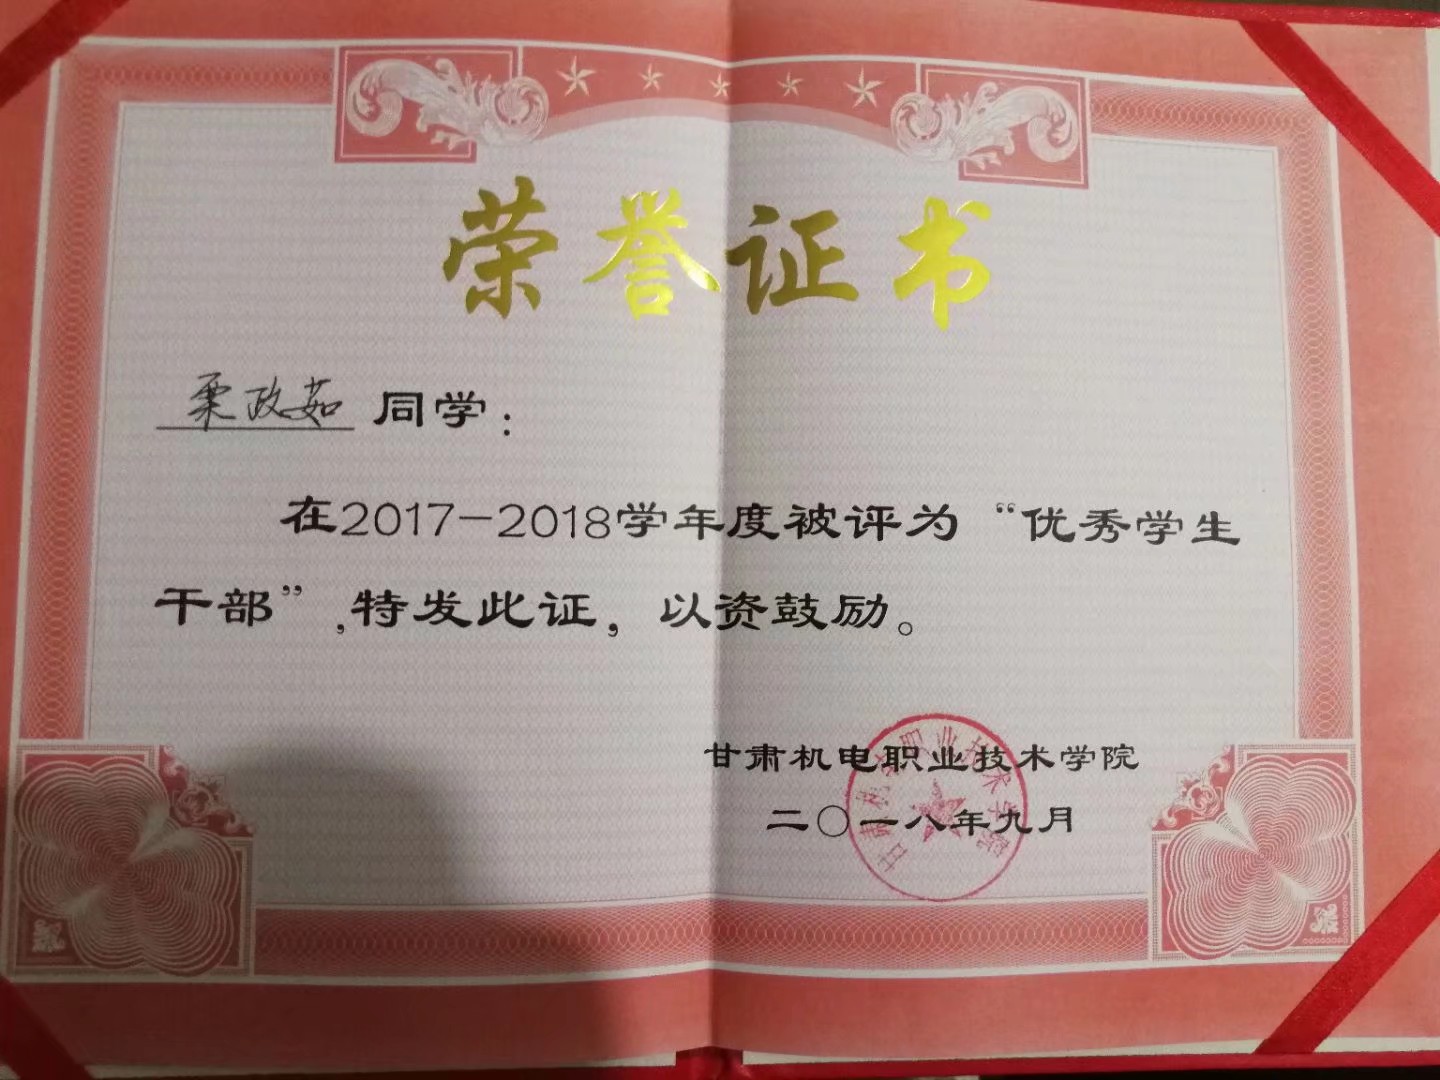 荣誉证书
栗政茹 同学：
在2017-2018学年度被评为“优秀学生
干部”,特发此证，以资鼓励。
甘肃机电职业技术学院
二〇一八年九月
甘肃机电职业技术学院